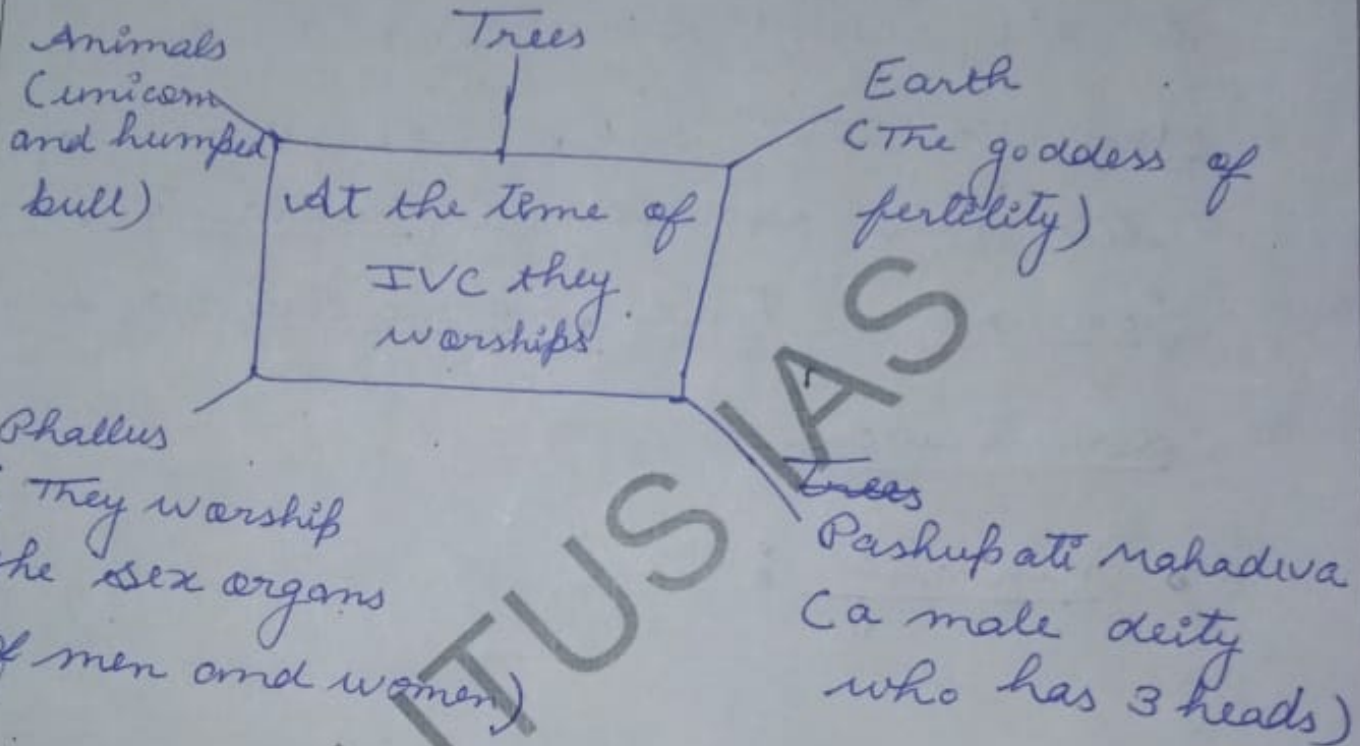 Animals
(unicorn
and humped
bull)
Trees
Earth
(The goddess of
fertility)
At the time of
IVC they
worships
Phallus
They worship
he sex organs
f men and women)
Trees
Pashupati Mahadeva
(a male deity
who has 3 heads)
TUS IAS